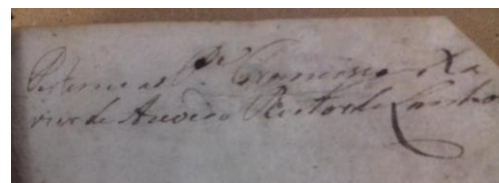 Pertence ao P.e Francisco Xa
vier de Azevedo Reitor de